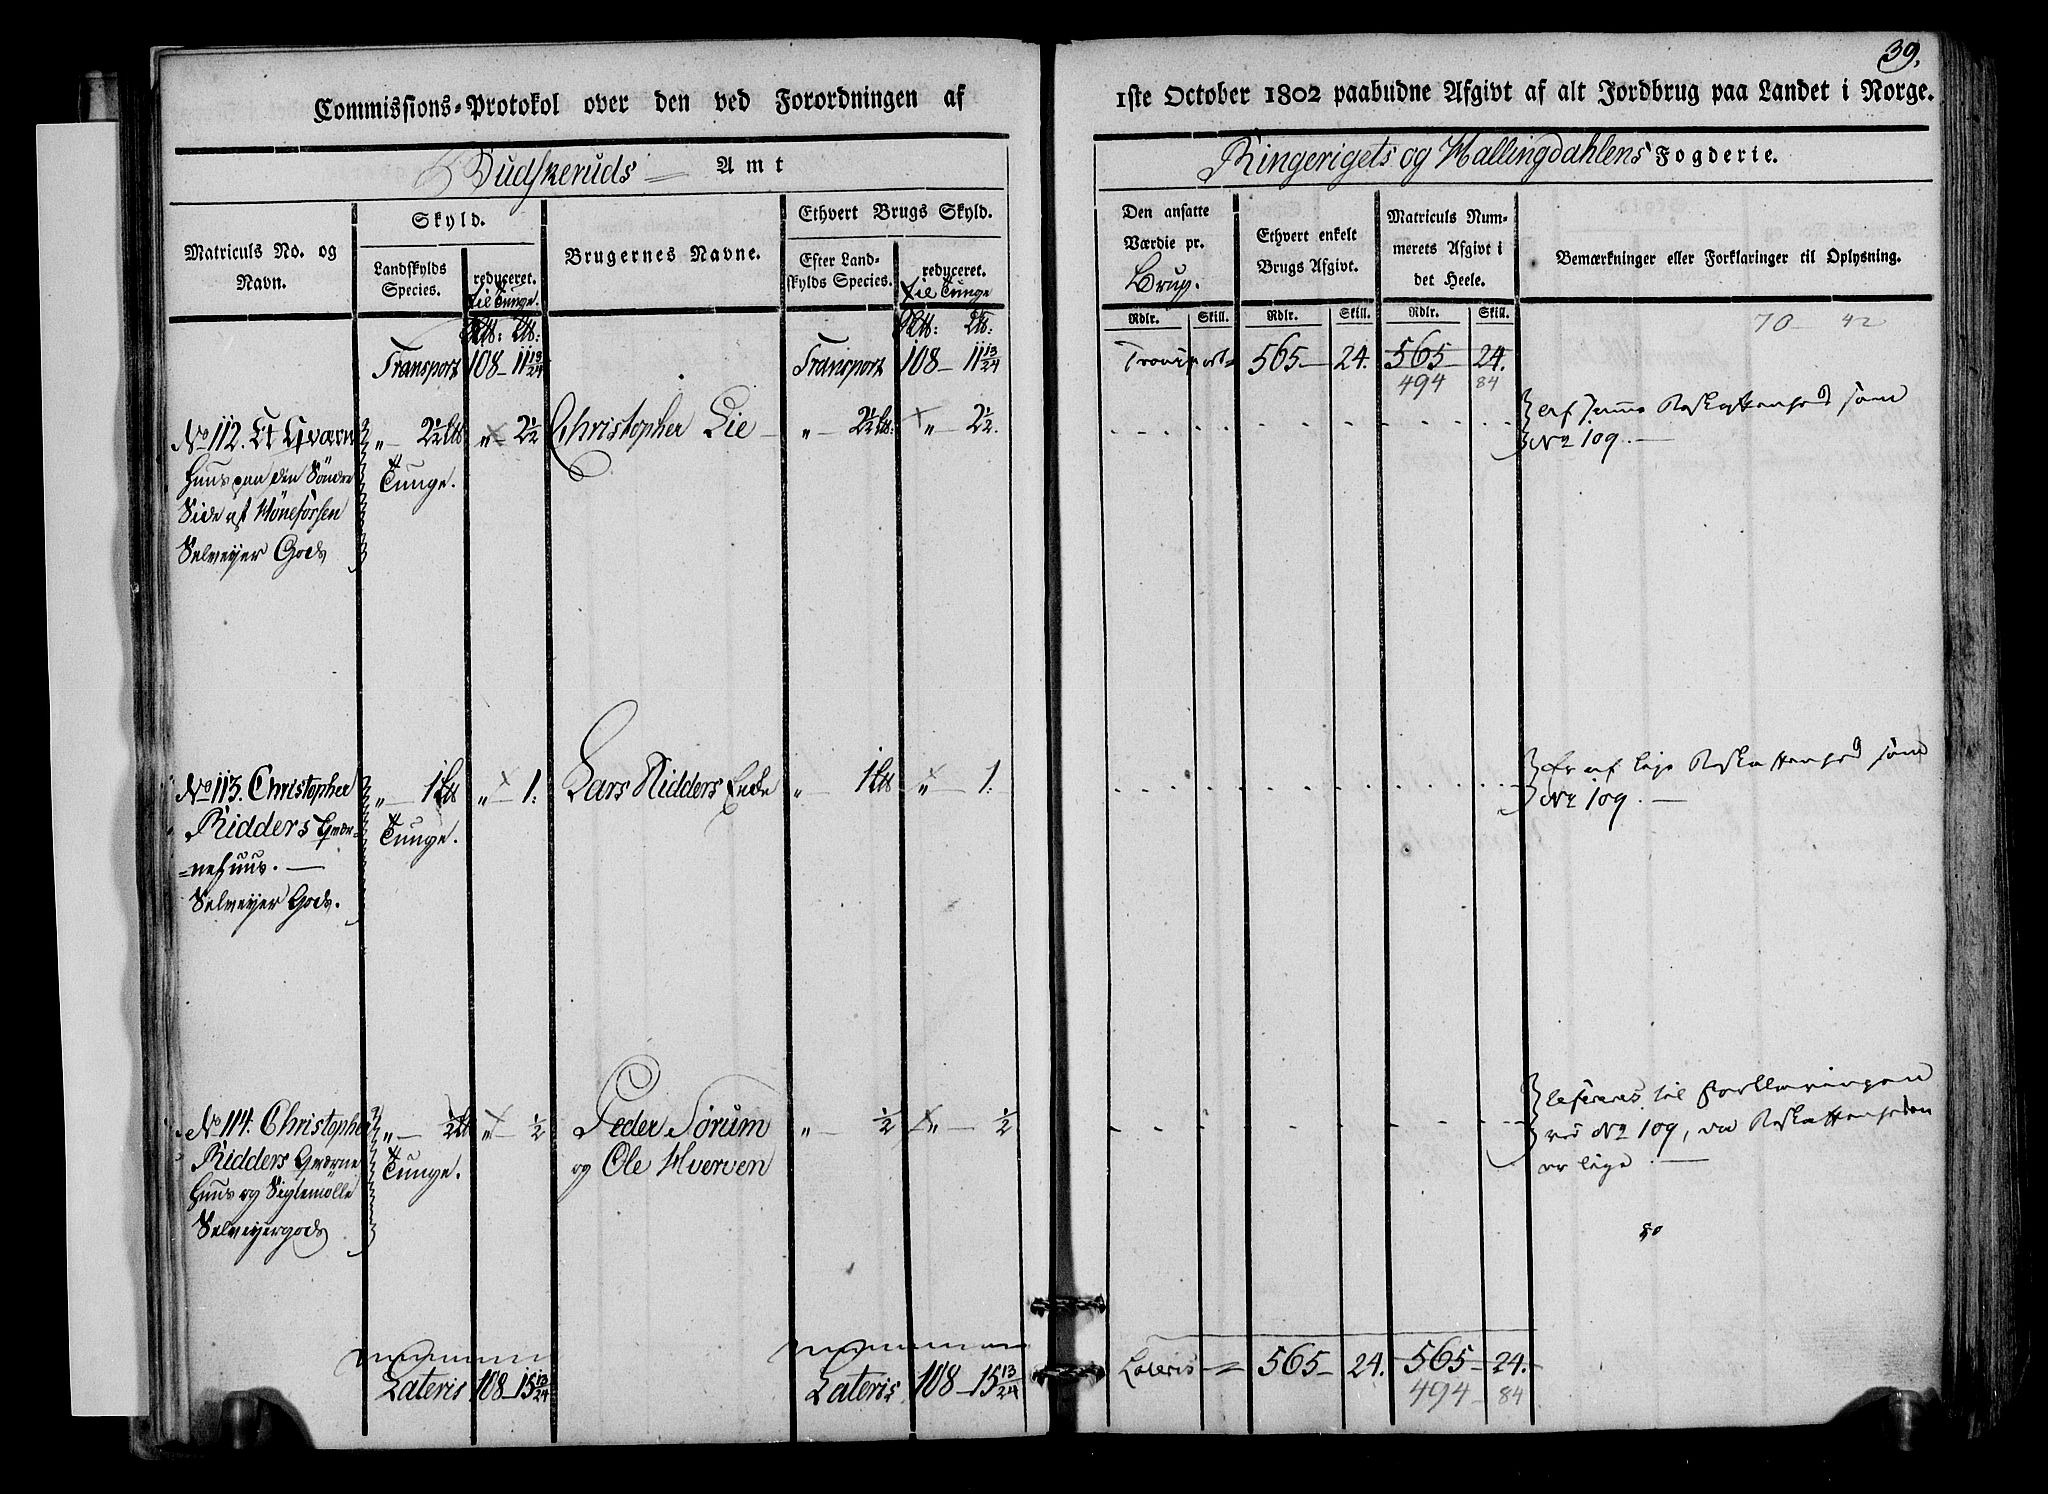 39.
Commissions-Protokol over den ved Forordningen af
1ste October 1802 paabudne Afgivt af alt Jordbrug paa Landet i Norge.
Budskeruds Amt
Ringerigets og Hallingdahlens Fogderie.
Matriculs No. og Navn.
Skyld.
Landskylds Species.
reduceret.
til Tunge.
Brugernes Navne.
Ethvert Brugs Skyld.
Efter Landskylds Species.
reduceret.
til Tunge
Den ansatte Værdie pr.
Brug.
Ethvert enkelt Brugs Afgivt.
Matriculs Nummerets Afgivt i det Heele.
Bemærkninger eller Forklaringer til Oplysning.
Rdlr. Skill. Rdlr. Skill. Rdlr. Skill.
70 - 42
Transport 108 - 11 13/24 Transport 108 - 11 13/24
Transport 565 - 24. 565 24.
494 84
No 112. Et Qværn „ - 2½ „ - 2½ Christopher Lie - „ - 2½ „ - 2½.
Huus paa den Söndre Tunge.
Side af Hönefossen
Selveyer Gods
af samme Beskaffenhed som
No 109. -
No 113. Christopher „ - 1 „ - 1: Lars Ridders Enke „ - 1 „ - 1:
Ridders Qvær= Tunge.
=nehuus. -
Selveyer Gods.
Er af lige Beskaffenhed som
No 109. -
No 114. Christopher „ - ½ „ - ½ Peder Sørum „ - ½ „ - ½
Ridders Qværne Tunge. og Ole Hverven
Huus og Sigtemölle
Selveyergods
refereres til Forklaringen
ved No 109, da Beskaffenheden
er lige. -
Lateris 108 - 15 13/24 Lateris 108 - 15 13/24
Lateris = 565 - 24. 565 - 24.
494 - 84